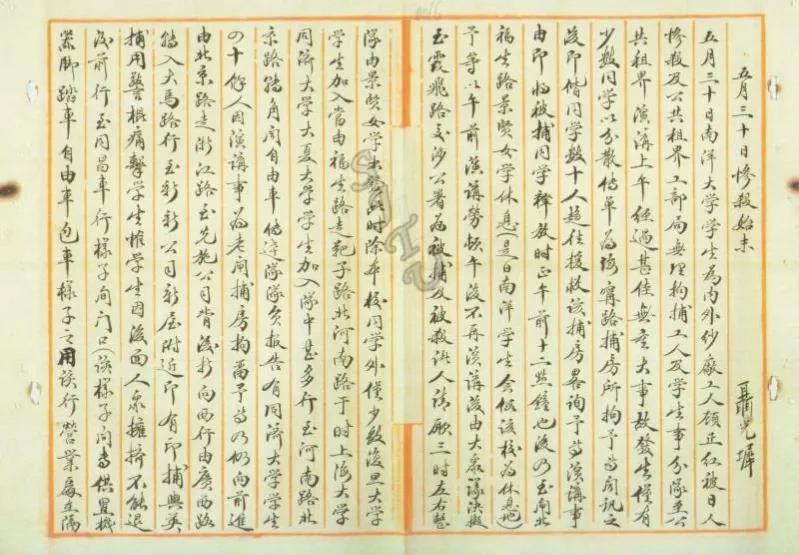 五月三十日慘殺始末
聶光墀
五月三十日南洋大学学生為内外紗廠工人顧正紅被日人
慘殺及公共租界工部局無理拘捕工人及学生事分隊至公
共租界演講上午經過甚佳無重大事故發生僅有
少數同学以分散傳單為海寧路捕房所拘予等聞訊之
後即偕同学數十人趨往援救該捕房畧詢予等演講事
由即將被捕同学釋放時正午前十二點鐘也後乃至閘北
福生路景賢女学休息(是日南洋学生会假該校為休息地)
予等以午前演講勞頓午後不再演講後由大衆議決赴
至霞飛路交涉公署為被捕及被殺諸人請願三時左右整
隊由景賢女学出發此時除本校同学外僅少數復旦大学
学生加入當由福生路走靶子路北河南路于时上海大学
同濟大学大夏大学学生加入隊中甚多行至河南路北
京路轉角間自由車傳達隊隊員报告有同濟大学学生
四十餘人因演講事為老閘捕房拘留予等乃仍向前進
由北京路走浙江路至先施公司背後折向西行由廣西路
轉入大馬路行至新新公司新屋附近即有印捕與英
捕用警棍痛擊学生惟学生因後面人衆擁擠不能退
後前行至同昌車行樣子间门口(該樣子间專供置機
器脚踏車自由車包車樣子之用該行營業處在隔